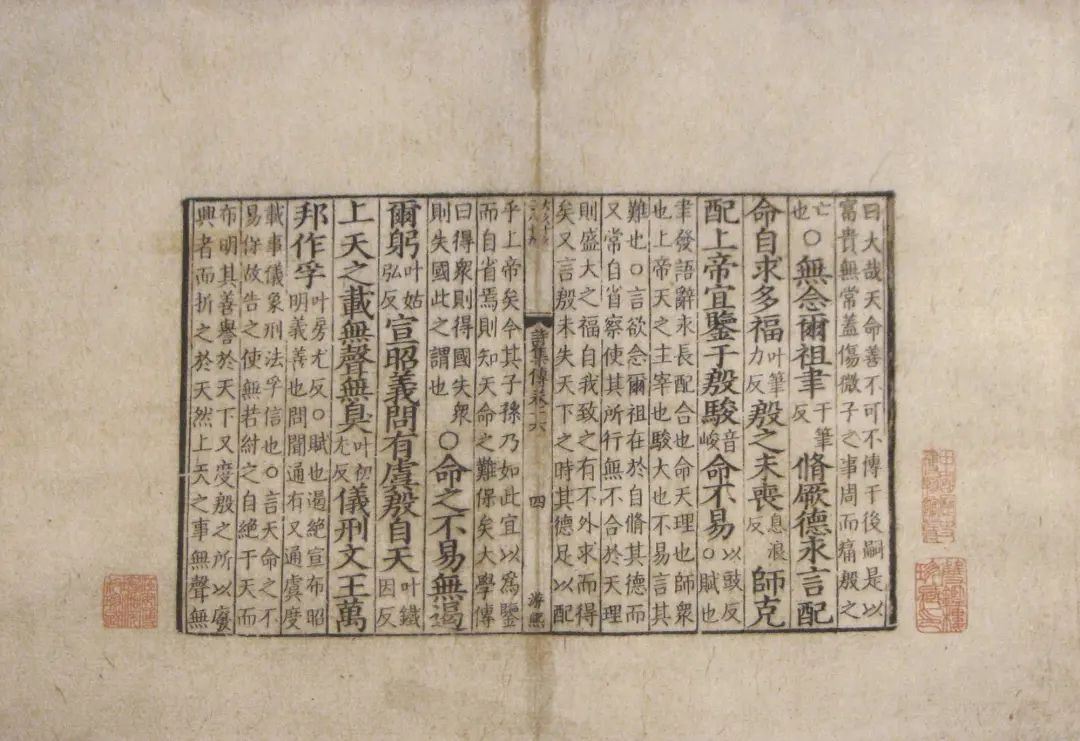 曰大哉天命善不可不傳于後嗣是以
富貴無常蓋傷微子之事周而痛殷之
亡也○無念爾祖聿于筆反脩厥德永言配
命自求多福叶筆力反殷之未喪息浪反師克
配上帝宜鑒于殷駿音峻命不易以豉反○賦也
聿發語辭永長配合也命天理也師衆
也上帝天之主宰也駿大也不易言其
難也○言欲念爾祖在於自脩其德而
又常自省察使其所行無不合於天理
則盛大之福自我致之有不外求而得
矣又言殷未失天下之時其德足以配
詩集傳卷十六 四 游熙
乎上帝矣今其子孫乃如此宜以爲鑒
而自省焉則知天命之難保矣大學傳
曰得衆則得國失衆則失國此之謂也○命之不易無遏
爾躬叶姑弘反宣昭義問有虞殷自天叶鐵因反
上天之載無聲無臭叶初尤反儀刑文王萬
邦作孚叶房尤反○賦也遏絶宣布昭明義善也問聞通有又通虞度
載事儀象刑法孚信也○言天命之不
易保故告之使無若紂之自絶于天而
布明其善譽於天下又度殷之所以廢
興者而折之於天然上天之事無聲無
雙鑑樓珍藏印